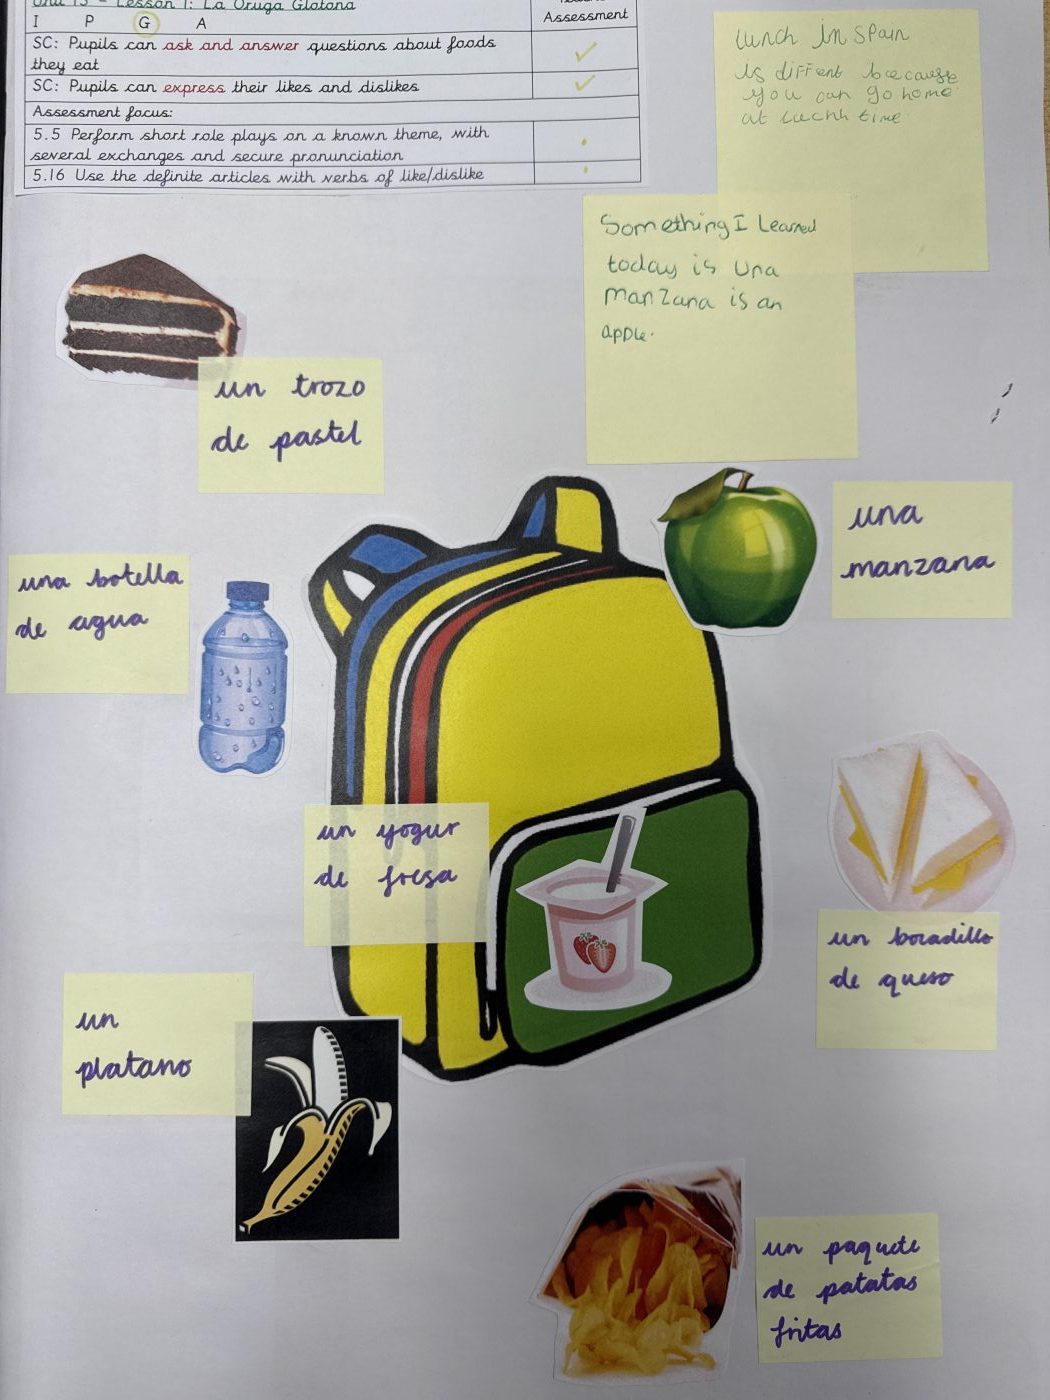 Unit 15 – Lesson 1: La Oruga Glotona
I P G A
Assessment
SC: Pupils can ask and answer questions about foods
they eat
SC: Pupils can express their likes and dislikes
Assessment focus:
5.5 Perform short role plays on a known theme, with
several exchanges and secure pronunciation
5.16 Use the definite articles with verbs of like/dislike
lunch in Spain
is diffent because
you can go home
at luchh time.
Something I Learned
today is una
manzana is an
apple.
un trozo
de pastel
una
manzana
una botella
de agua
un yogur
de fresa
un bocadillo
de queso
un
platano
un paquete
de patatas
fritas